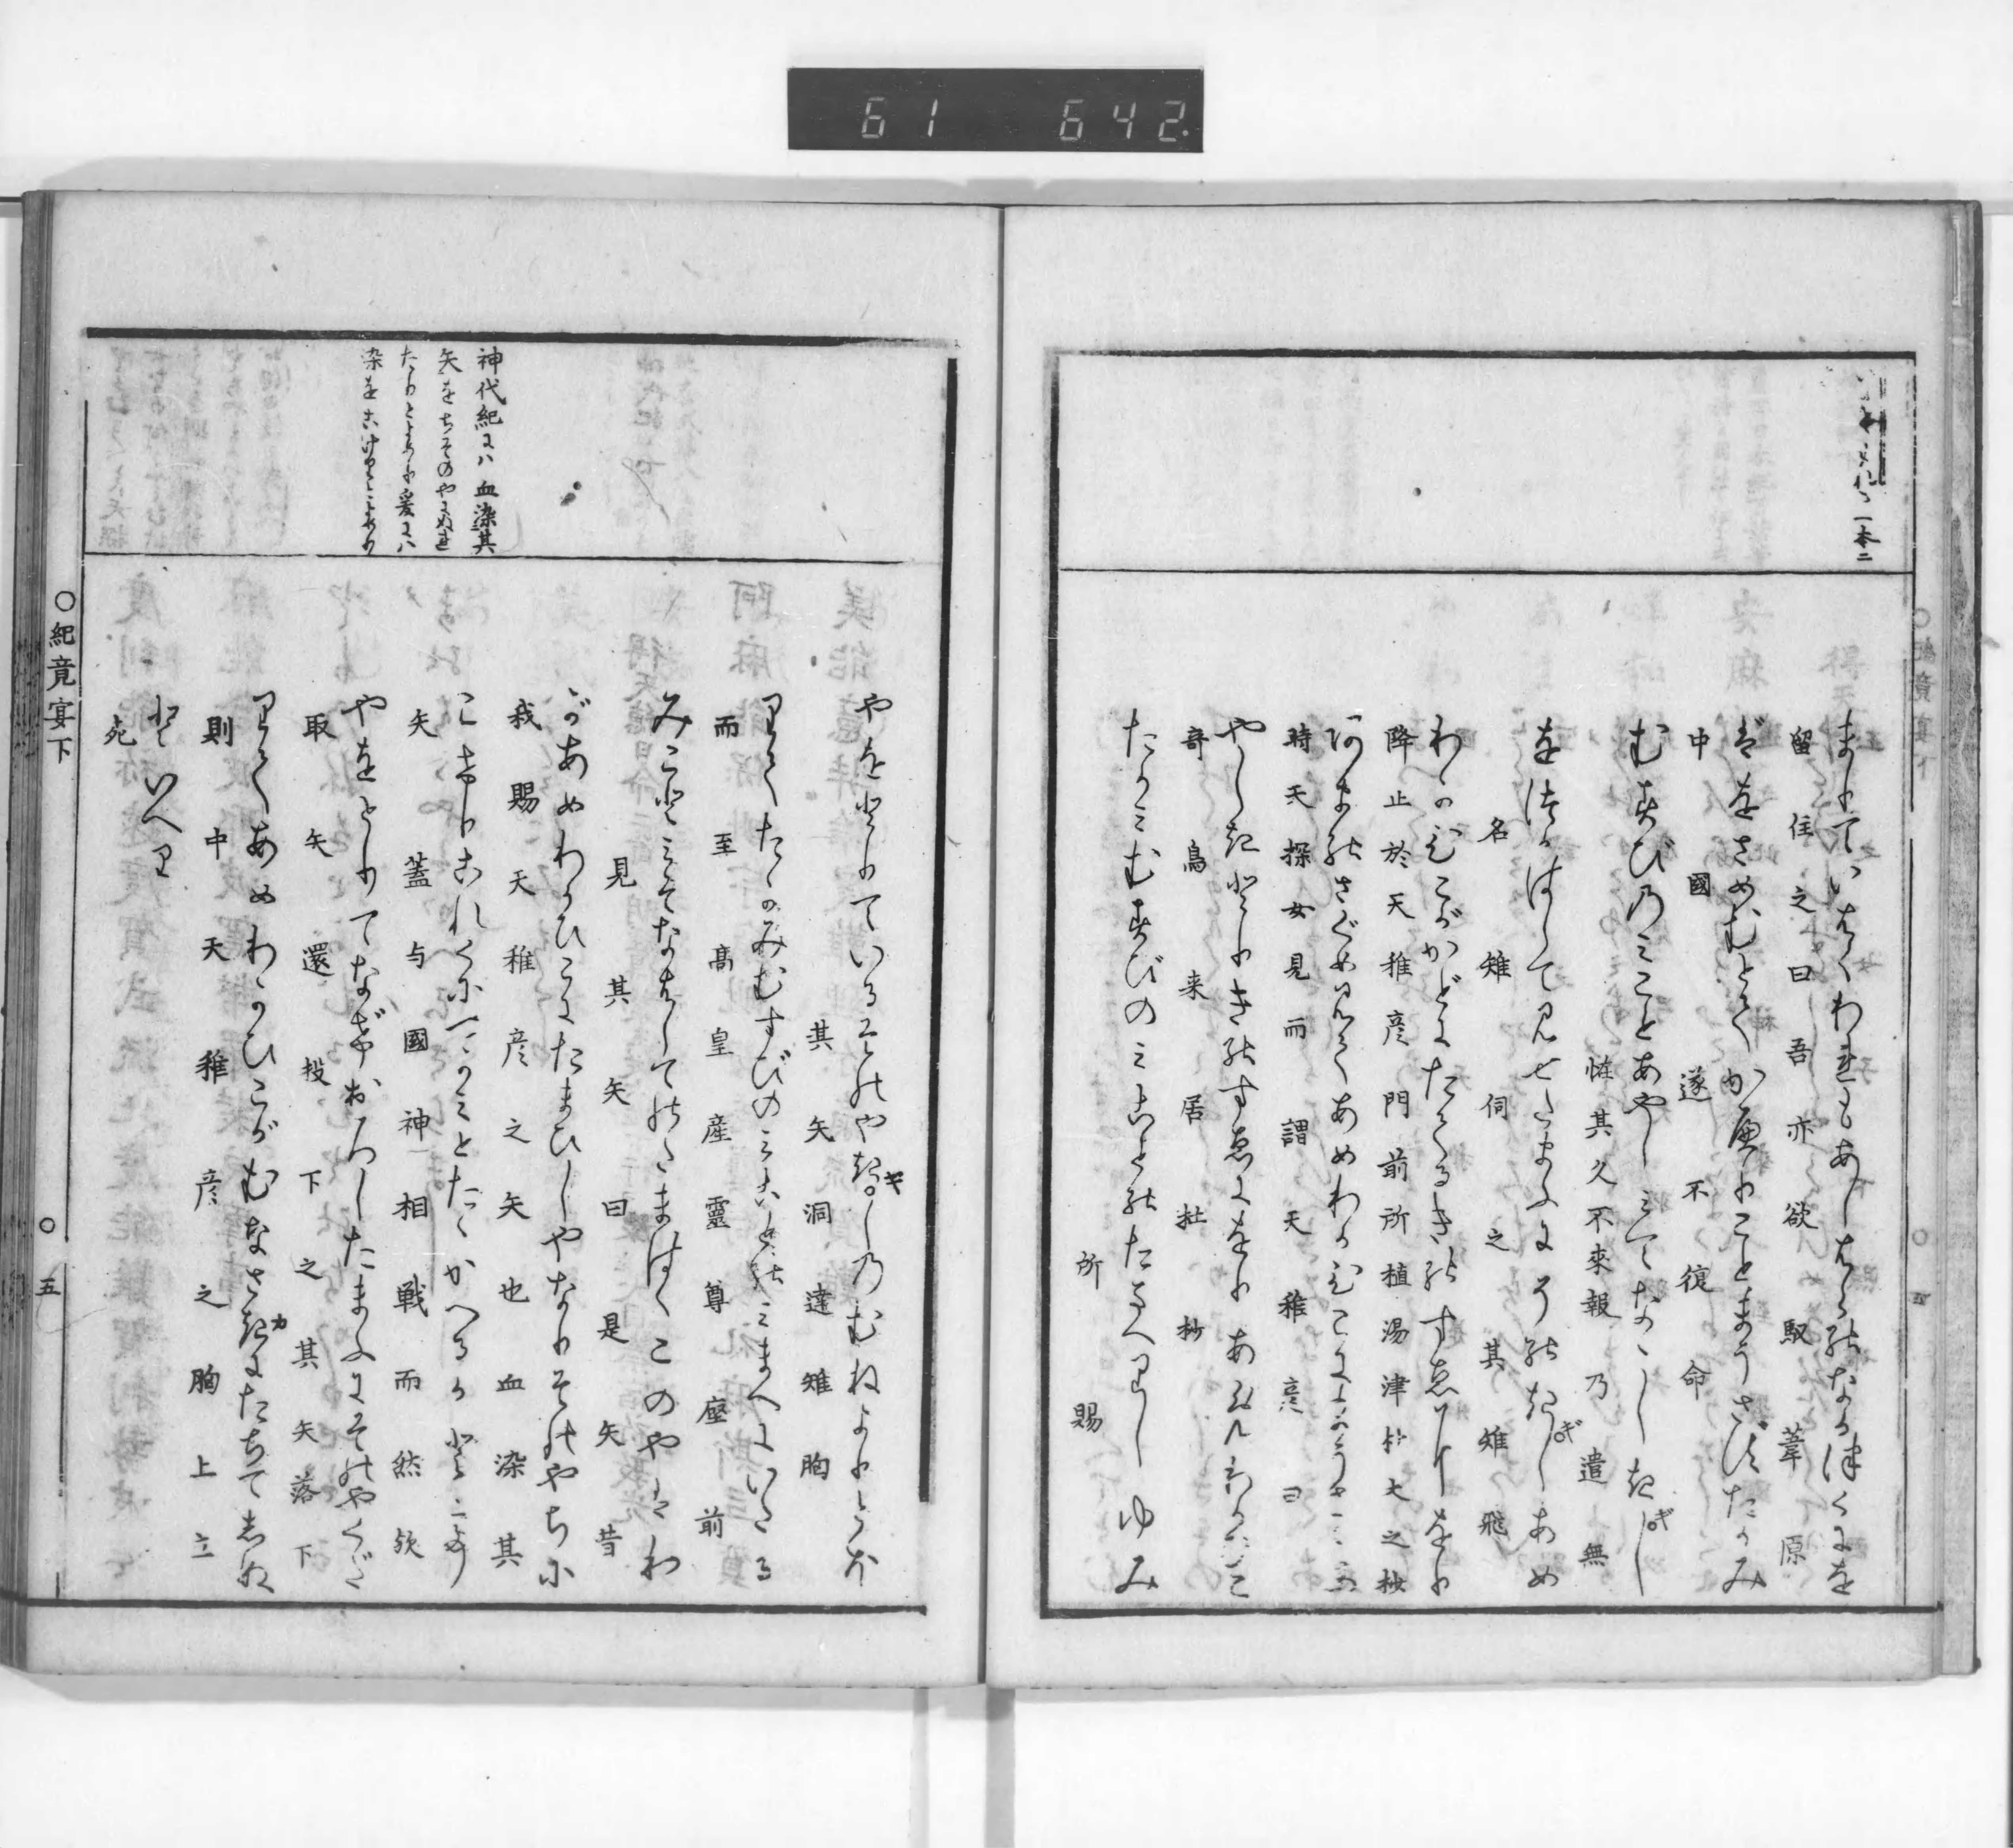 61 642.
一本ニ
まりていはくわれもあしはらのなかつくにを
留住之曰吾亦欲馭葦原
ばをさめむとてかへりことまうさずたかみ
中國遂不復命
むすびのみことあやしみてなこしきギし
恠其久不來報乃遣無
をつかはして見せたまふにそのきギしあめ
名雉伺之其雉飛
わかひこがかどにたてるきのすゑにをり
降止於天稚彦門前所植湯津杜之杪
あまのさぐめ見てあめわかひこに
時天探女見而謂天稚彦曰
やしきとりきのすゑにをり
奇鳥来居杜杪
たかみむすびのみことのたまへりしゆみ
所賜
やをとりているそのやきギしのむねよりとほ
其矢洞達雉胸
りてたかみむすびのみことのみまへにいたる
而至髙皇産靈尊座前
みこと見そなはしてのたまはくこのやはわ
見其矢曰是矢昔
があめわかひこにたまひしやなりそのやちに
我賜天稚彦之矢也血染其
こけりこれくにつかみとたゝかへるかとみより
矢蓋与國神相戦而然欤
やをとりてなげおろしたまふにそのやくだ
取矢還投下之其矢落下
りてあめわかひこがむなさきカにたちてしぬ
則中天稚彦之胸上立
といへり
死
神代紀にハ血染其
矢をちそのやにぬれ
たりとよめり爰にハ
染をこけりとよめり
○紀竟宴下
○五